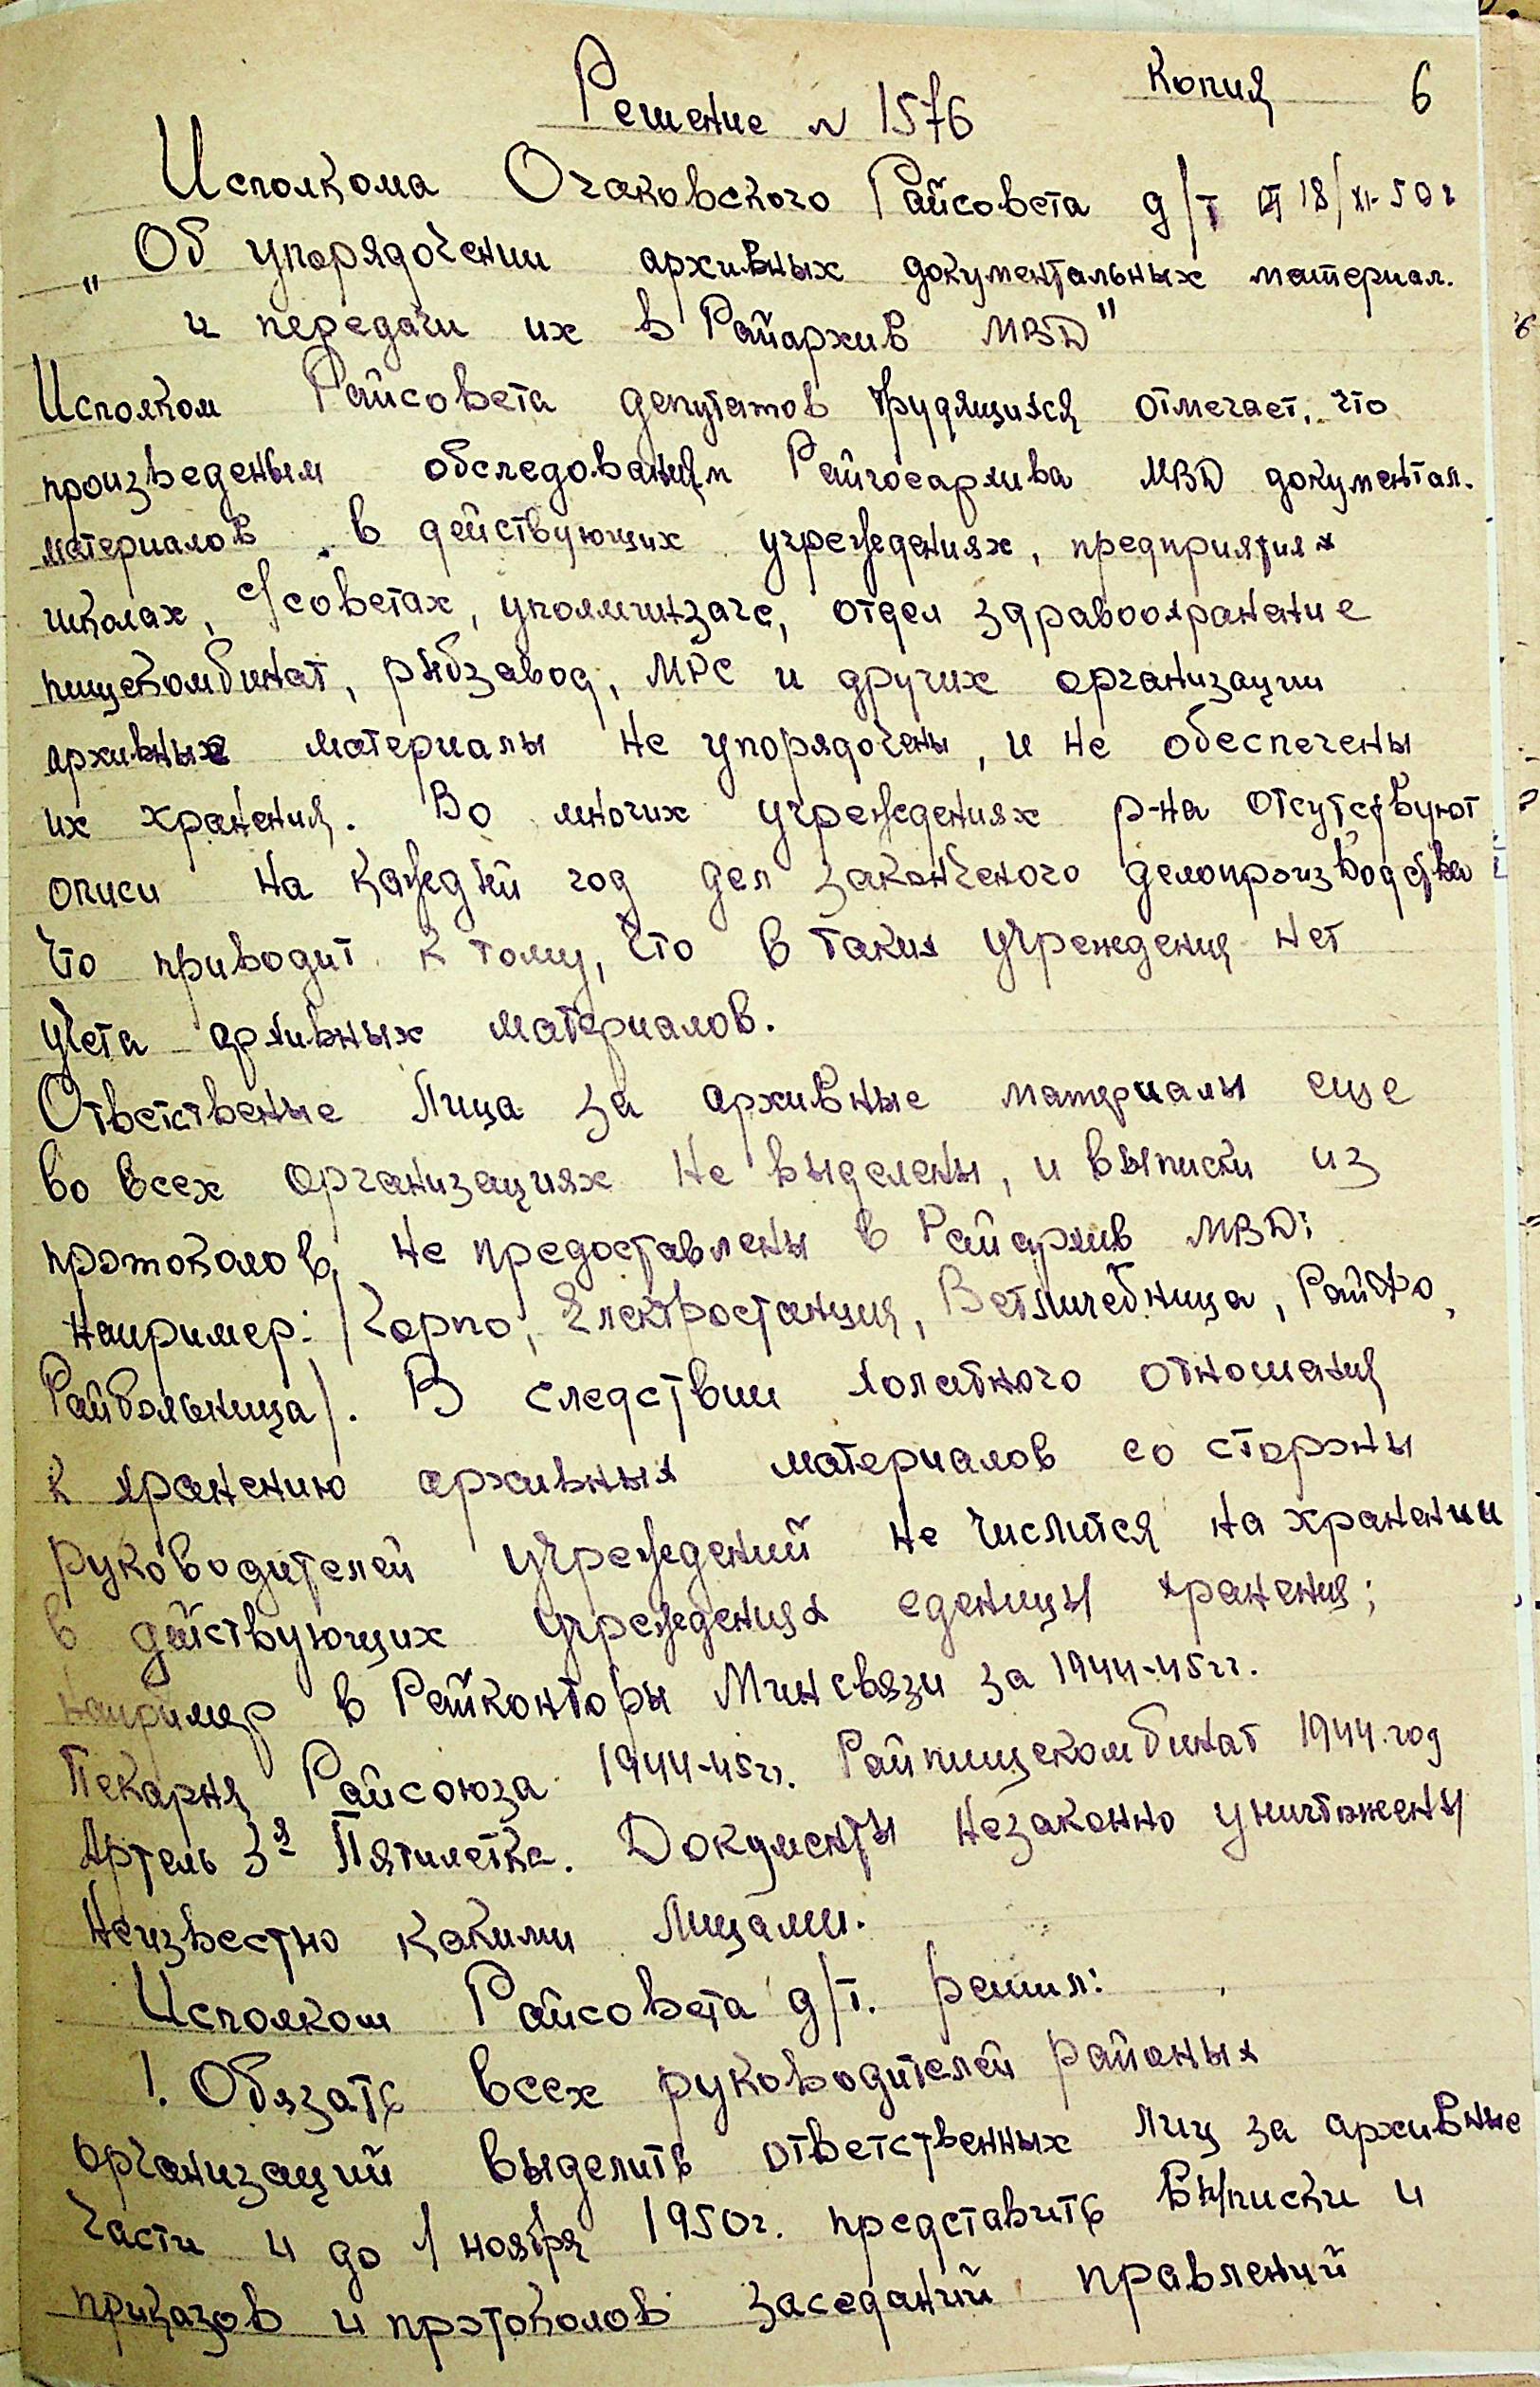 Копия 6
Решение N 1576
Исполкома Очаковского Райсовета д/т от 18/XI-50г
„Об упорядочении архивных документальных материал.
и передачи их в Райархив МВД"
Исполком Райсовета депутатов трудящихся отмечает, что
произведеным обследованием Райгосархива МВД документал.
материалов в действующих учреждениях, предприятиях
школах, с/советах, уполминзаге, отдел здравоохранение
пищекомбинат, рыбзавод, МРС и других организации
архивные материалы не упорядочены, и не обеспечены
их хранения. Во многих учреждениях р-на отсутствуют
описи на каждый год дел законченого делопроизводства
что приводит к тому, что в таких учреждения нет
учета архивных материалов.
Ответственые лица за архивные материалы еще
во всех организациях не выделены, и выписки из
протоколов не предоставлены в Райархив МВД:
например: /Горпо, Електростанция, Ветличебница, РайФо,
Райбольница/. В следствии холатного отношения
к хранению архивных материалов со стороны
руководителей учреждений не числится на хранении
в действующих учреждениях еденицы хранения;
например в Райконторы Минсвязи за 1944-45гг.
Пекарня Райсоюза 1944-45гг. Райпищекомбинат 1944.год
Артель 3я Пятилетка. Документы незаконно уничтожены
неизвестно какими лицами.
Исполком Райсовета д/т. решил:
1. Обязать всех руководителей районых
организаций выделить ответственных лиц за архивные
части и до 1 ноября 1950г. представить выписки и
приказов и протоколов заседаний правлений